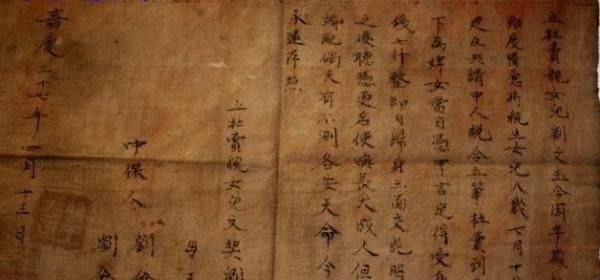 立杜賣親女兒劉文玉今因年歲
難度情急將親生女兒八歲七月十
央請中人說合立筆杜賣到
下為婢女當日憑中言定得受
錢七仟整即日歸身二面交兑明
之後聽憑更名使喚長大成人但
婚配倘天有不測各安天命今
永遠存照
立杜賣親女兒文契劉
母王
中保人 劉
劉
嘉慶二十七年四月十三日